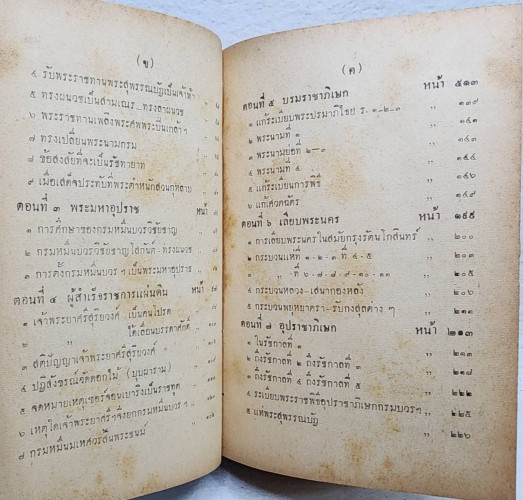 ( ข )
๔ รับพระราชทานพระสุพรรณบัฏเป็นเจ้าฟ้า
๕ ทรงผนวชเป็นสามเณร - ทรงลาผนวช
๖ พระราชทานเพลิงพระศพพระปิ่นเกล้าฯ
๗ ทรงเปลี่ยนพระนามกรม
๘ ข้อสงสัยที่จะเป็นรัชทายาท
๙ เมื่อเสด็จประทับที่พระตำหนักสวนกุหลาบ
ตอนที่ ๓ พระมหาอุปราช หน้า
๑ การศึกษาของกรมหมื่นบวรวิชัยชาญ
๒ กรมหมื่นบวรวิชัยชาญโสกันต์ - ทรงผนวช
๓ การตั้งกรมหมื่นบวรฯ เป็นพระมหาอุปราช
ตอนที่ ๔ ผู้สำเร็จราชการแผ่นดิน หน้า
๑ เจ้าพระยาศรีสุริยวงศ์ เป็นคนโปรด
๒ " ได้เลื่อนบรรดาศักดิ์
๓ สติปัญญาเจ้าพระยาศรีสุริยวงศ์
๔ ปฏิสังขรณ์วัดดอกไม้ (บุปผาราม)
๕ จดหมายเหตุเซอร์จอนเบาริงเป็นราชทูต
๖ เหตุใดเจ้าพระยาศรีฯ จึงยกกรมหมื่นบวรฯ
๘ กรมหมื่นมเหศวรสิ้นพระชนม์
( ค )
ตอนที่ ๕ บรมราชาภิเษก หน้า ๑๓๘
๑ แก้ระเบียบพระปรมาภิไธย ร. ๑-๒-๓ " ๑๓๙
๒ พระนามที่ ๑
๓ พระนามย่อที่ ๒-๓
๔ พระนามที่ ๔
๕ แก้ระเบียนการพิธี
๖ แก้เศวตฉัตร
ตอนที่ ๖ เลียบพระนคร หน้า ๑๙๙
๑ การเลียบพระนครในสมัยกรุงรัตนโกสินทร์ " ๒๐๐
๒ กระบวนแห่ที่ ๑-๒-๓ ที่ ๔-๕ " ๒๐๓
๓ " ที่ ๖-๗-๘-๙-๑๐-๑๑ " ๒๐๕
๔ กระบวนหลวง - เสนากองหลัง " ๒๐๖
๕ กระบวนพยุหยาตรา - รับกงสุลต่าง ๆ " ๒๑๑
ตอนที่ ๗ อุปราชาภิเษก หน้า ๒๑๓
๑ ในรัชกาลที่ ๑ " ๒๑๓
๒ ถึงรัชกาลที่ ๒ ถึงรัชกาลที่ ๓ " ๒๑๘
๓ ถึงรัชกาลที่ ๔ ถึงรัชกาลที่ ๕
๔ ระเบียบพระราชพิธีอุปราชาภิเษกกรมบวรฯ " ๒๒๕
๕ แห่พระสุพรรณบัฏ " ๒๒๖